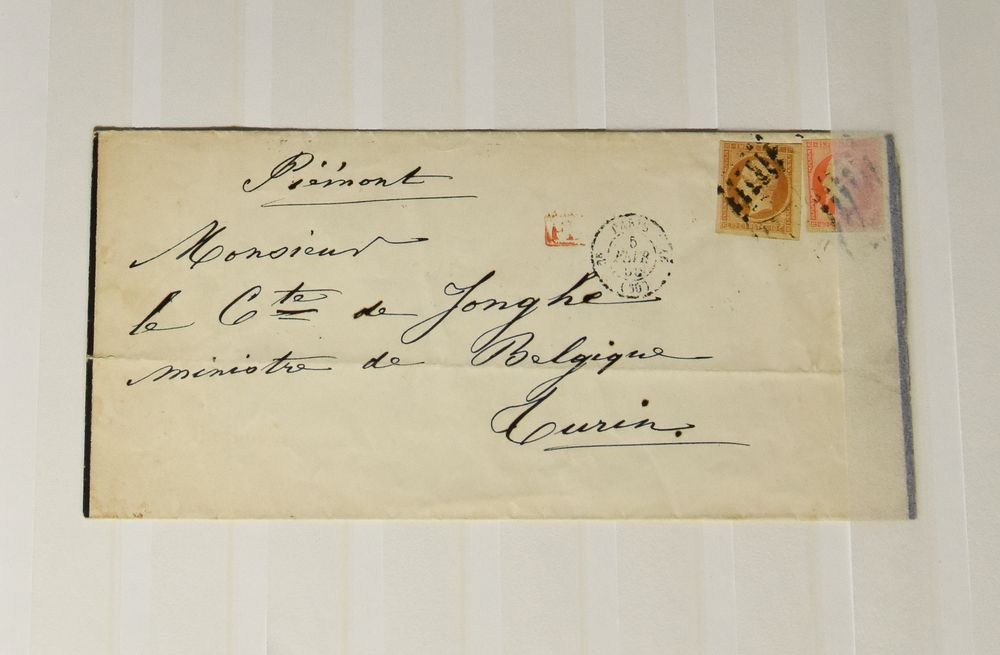 Piémont
Monsieur
le Cte de Jonghe
ministre de Belgique
Turin.
PARIS
5
FEVR
(60)